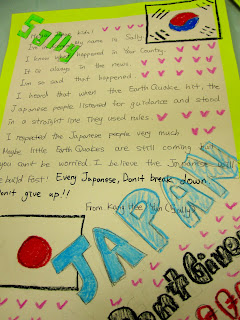 Sally
Kids!
my name is Sally
I know what happened in Your Country.
It is always in the news.
I'm so sad that happened.
I heard that when the Earth Quake hit, the
Japanese people listened for guidance and stood
in a straight line They used rules.
I respected the Japanese people very much
Maybe little Earth Quakes are still coming but
you can't be worried. I believe the Japanese will
build fast! Every Japanese, Don't break down.
Don't give up!!
From Kang Hee
JAPAN
Don't Give